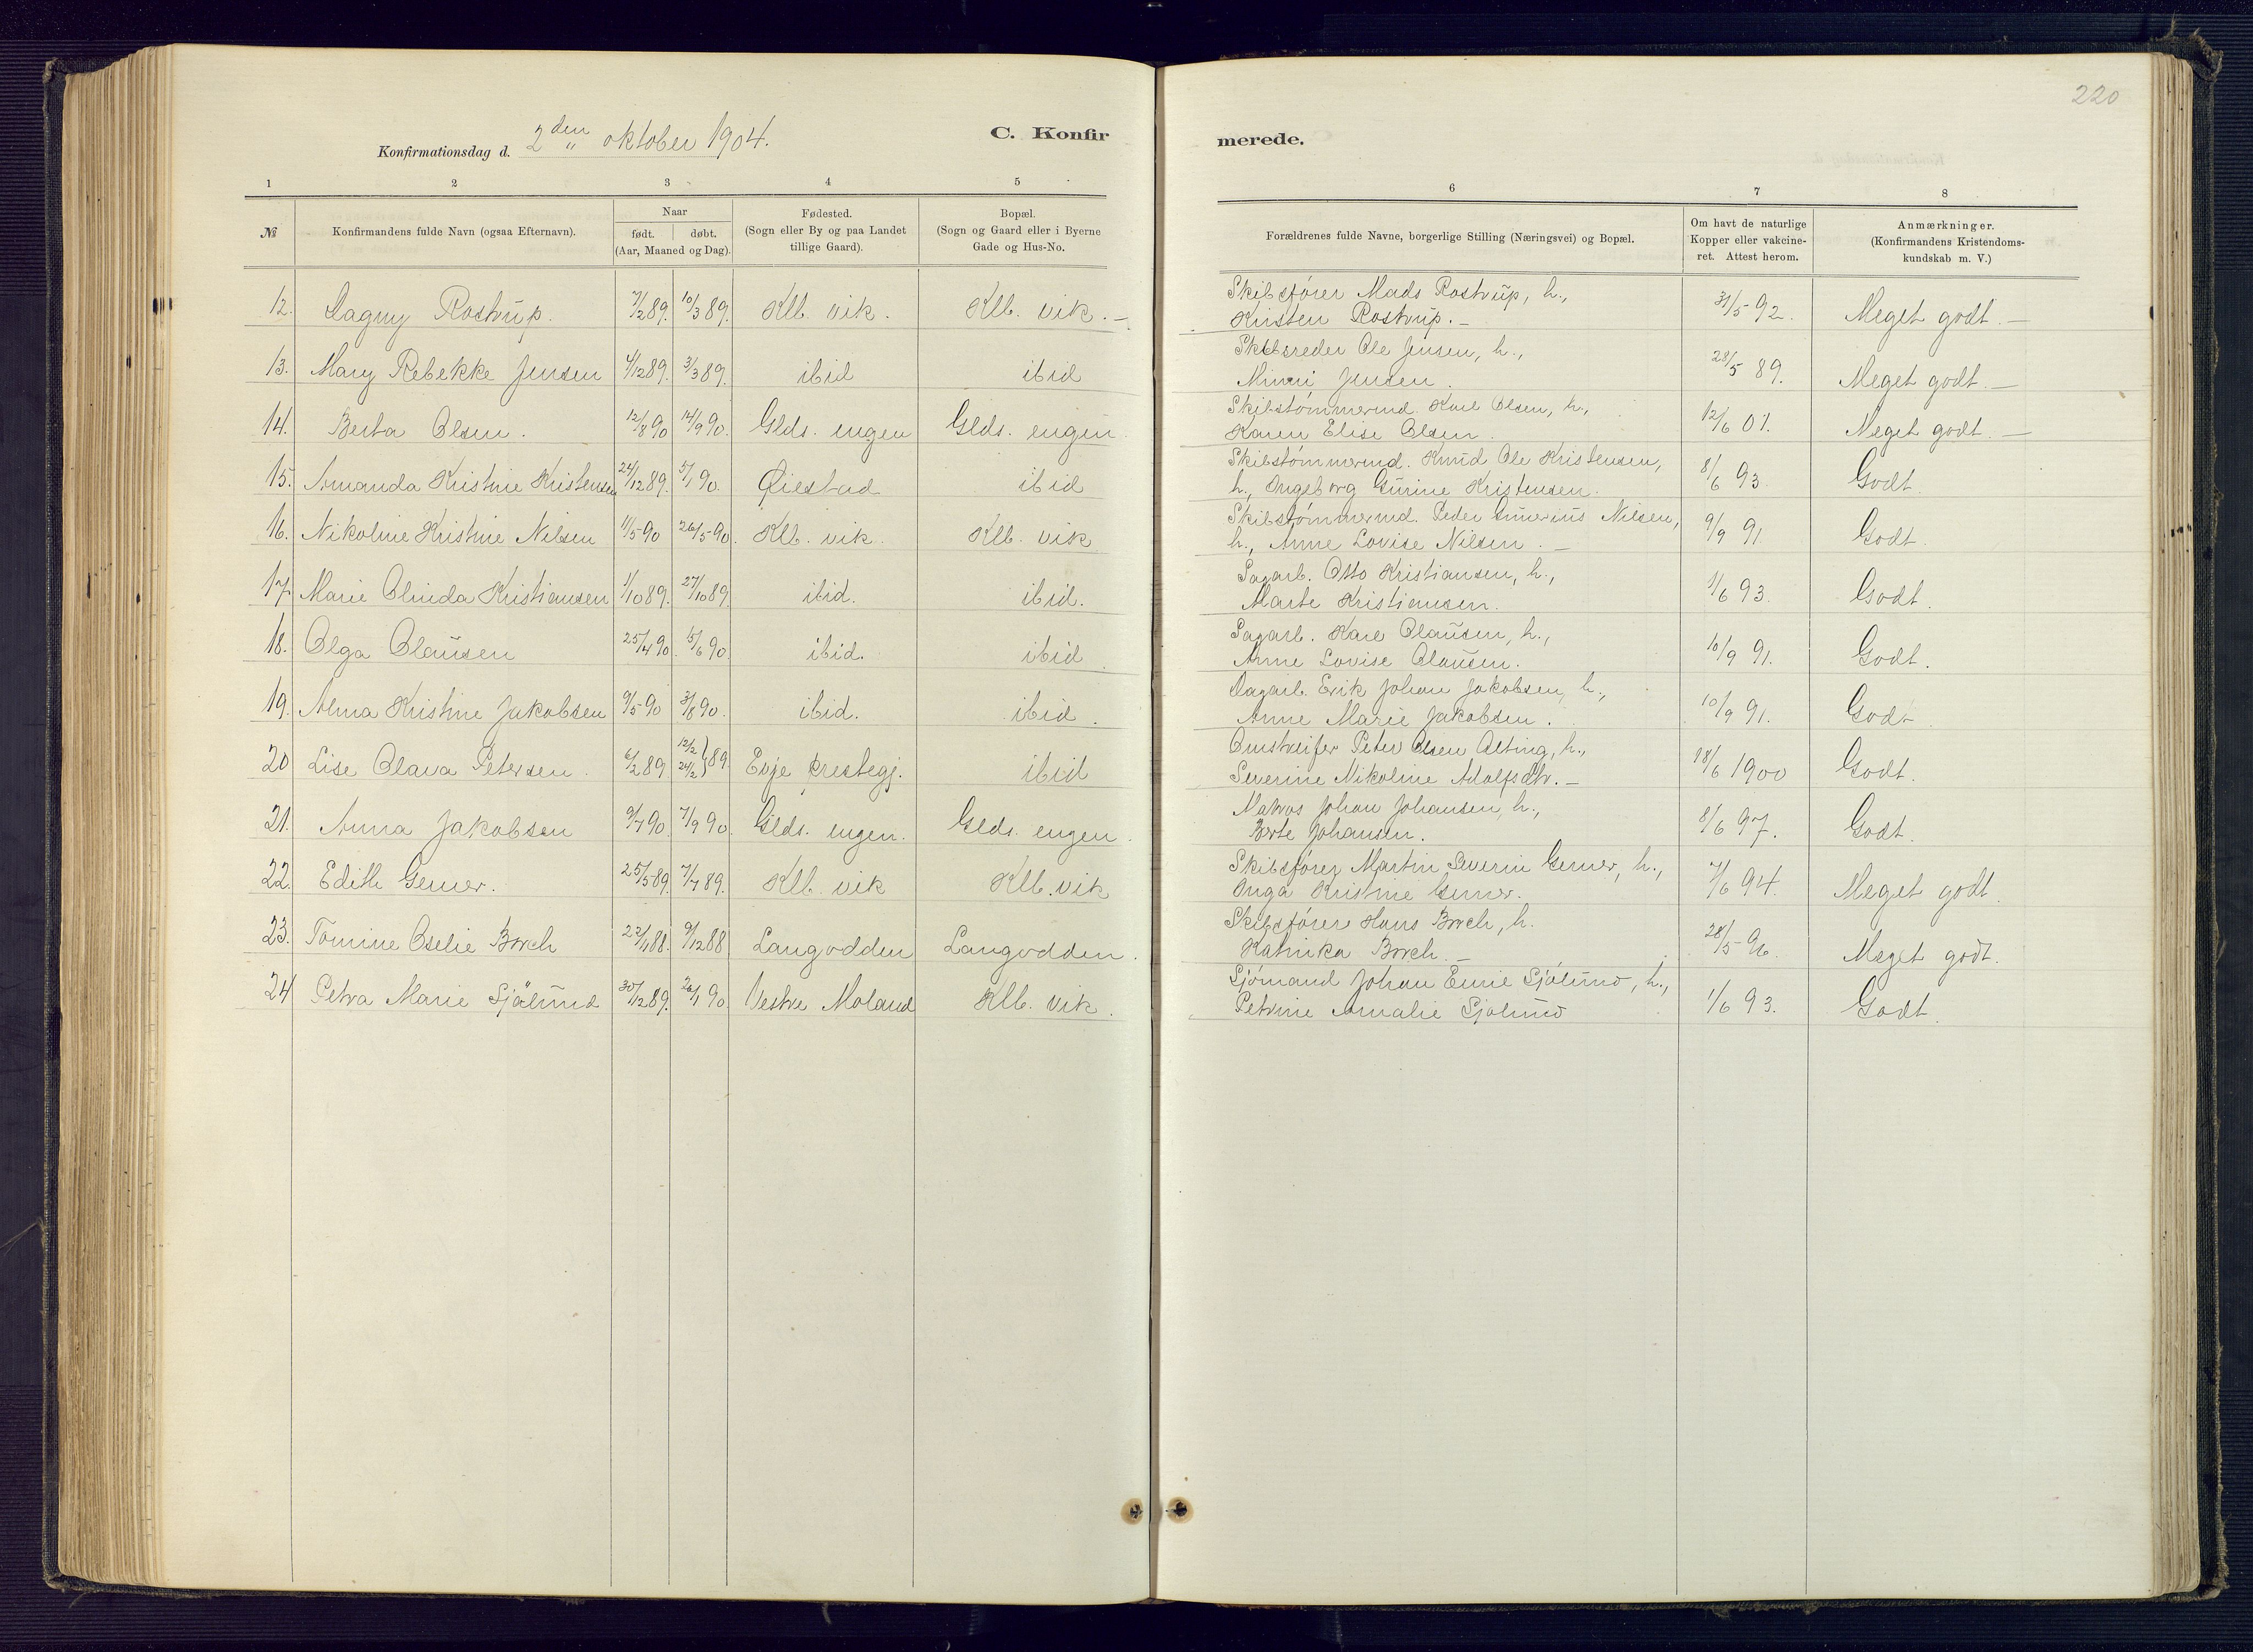 220
Konfirmationsdag d. 2den oktober 1904.
C. Konfirmerede.
1 2 3 4 5 6 7 8
№
Konfirmandens fulde Navn (ogsaa Efternavn).
Naar
født. døbt.
(Aar, Maaned og Dag).
Fødested.
(Sogn eller By og paa Landet
tillige Gaard).
Bopæl.
(Sogn og Gaard eller i Byerne
Gade og Hus-No.
Forældrenes fulde Navne, borgerlige Stilling (Næringsvei) og Bopæl.
Om havt de naturlige
Kopper eller vakcine-
ret. Attest herom.
Anmærkninger.
(Konfirmandens Kristendoms-
kundskab m. V.)
12. Dagny Rostrup. 7/2 89. 10/3 89. Klb. vik. Klb. vik. —
Skibsfører Mads Rostrup, h.,
Kristen Rostrup. — 31/5 92. Meget godt. —
13. Mary Rebekke Jensen 4/12 89. 3/3 89. ibid ibid
Skibsreder Ole Jensen, h.,
Minni Jensen. 28/5 89. Meget godt. —
14. Berta Olsen. 12/8 90 14/9 90. Glds. engen Glds. engen
Skibstømmermd. Karl Olsen, h.,
Karen Elise Olsen. 12/6 01. Meget godt. —
15. Amanda Kristine Kristensen 24/12 89. 5/1 90. Øiestad ibid
Skibstømmermd. Knud Ole Kristensen,
h., Ingeborg Gurine Kristensen. 8/6 93. Godt.
16. Nikoline Kristine Nilsen 11/5 90 26/5 90. Klb. vik. Klb. vik
Skibstømmermd. Peder Nilsen,
h., Anne Lovise Nilsen. — 9/9 91. Godt.
17. Marie Olinda Kristiansen 1/10 89. 27/10 89. ibid. ibid.
Sagarb. Otto Kristiansen, h.,
Marte Kristiansen. 1/6 93. Godt.
18. Olga Olausen 25/4 90. 15/6 90. ibid. ibid.
Sagarb. Karl Olausen, h.,
Anne Lovise Olausen. 10/9 91. Godt.
19. Alma Kristine Jakobsen 9/5 90 3/8 90. ibid. ibid.
Dagarb. Erik Johan Jakobsen, h.,
Anne Marie Jakobsen. 10/9 91. Godt
20 Lise Olava Petersen. 6/2 89 12/2 24/2 } 89. Evje prestegj. ibid
Omstreifer Peter Olsen Alting, h.,
Severine Nikoline Adolfsdtr. — 18/6 1900 Godt.
21. Anna Jakobsen 9/7 90. 7/9 90. Glds. engen. Glds. engen.
Matros Johan Johansen, h.,
Berte Johansen. 8/6 97. Godt.
22. Edith Gerner. 25/5 89. 7/7 89. Klb. vik Klb. vik
Skibsfører Martin Severin Gerner, h.,
Inga Kristine Gerner. 7/6 94. Meget godt.
23. Tomine Oselie Borch 22/1 88. 9/12 88 Langodden Langodden.
Skibsfører Hans Borch, h.
Katinka Borch. — 28/5 96. Meget godt.
24 Petra Marie Sjölund 30/12 89. 26/1 90. Vestre Moland Klb. vik.
Sjømand Johan Emil Sjölund, h.,
Petrine Amalie Sjölund 1/6 93. Godt.